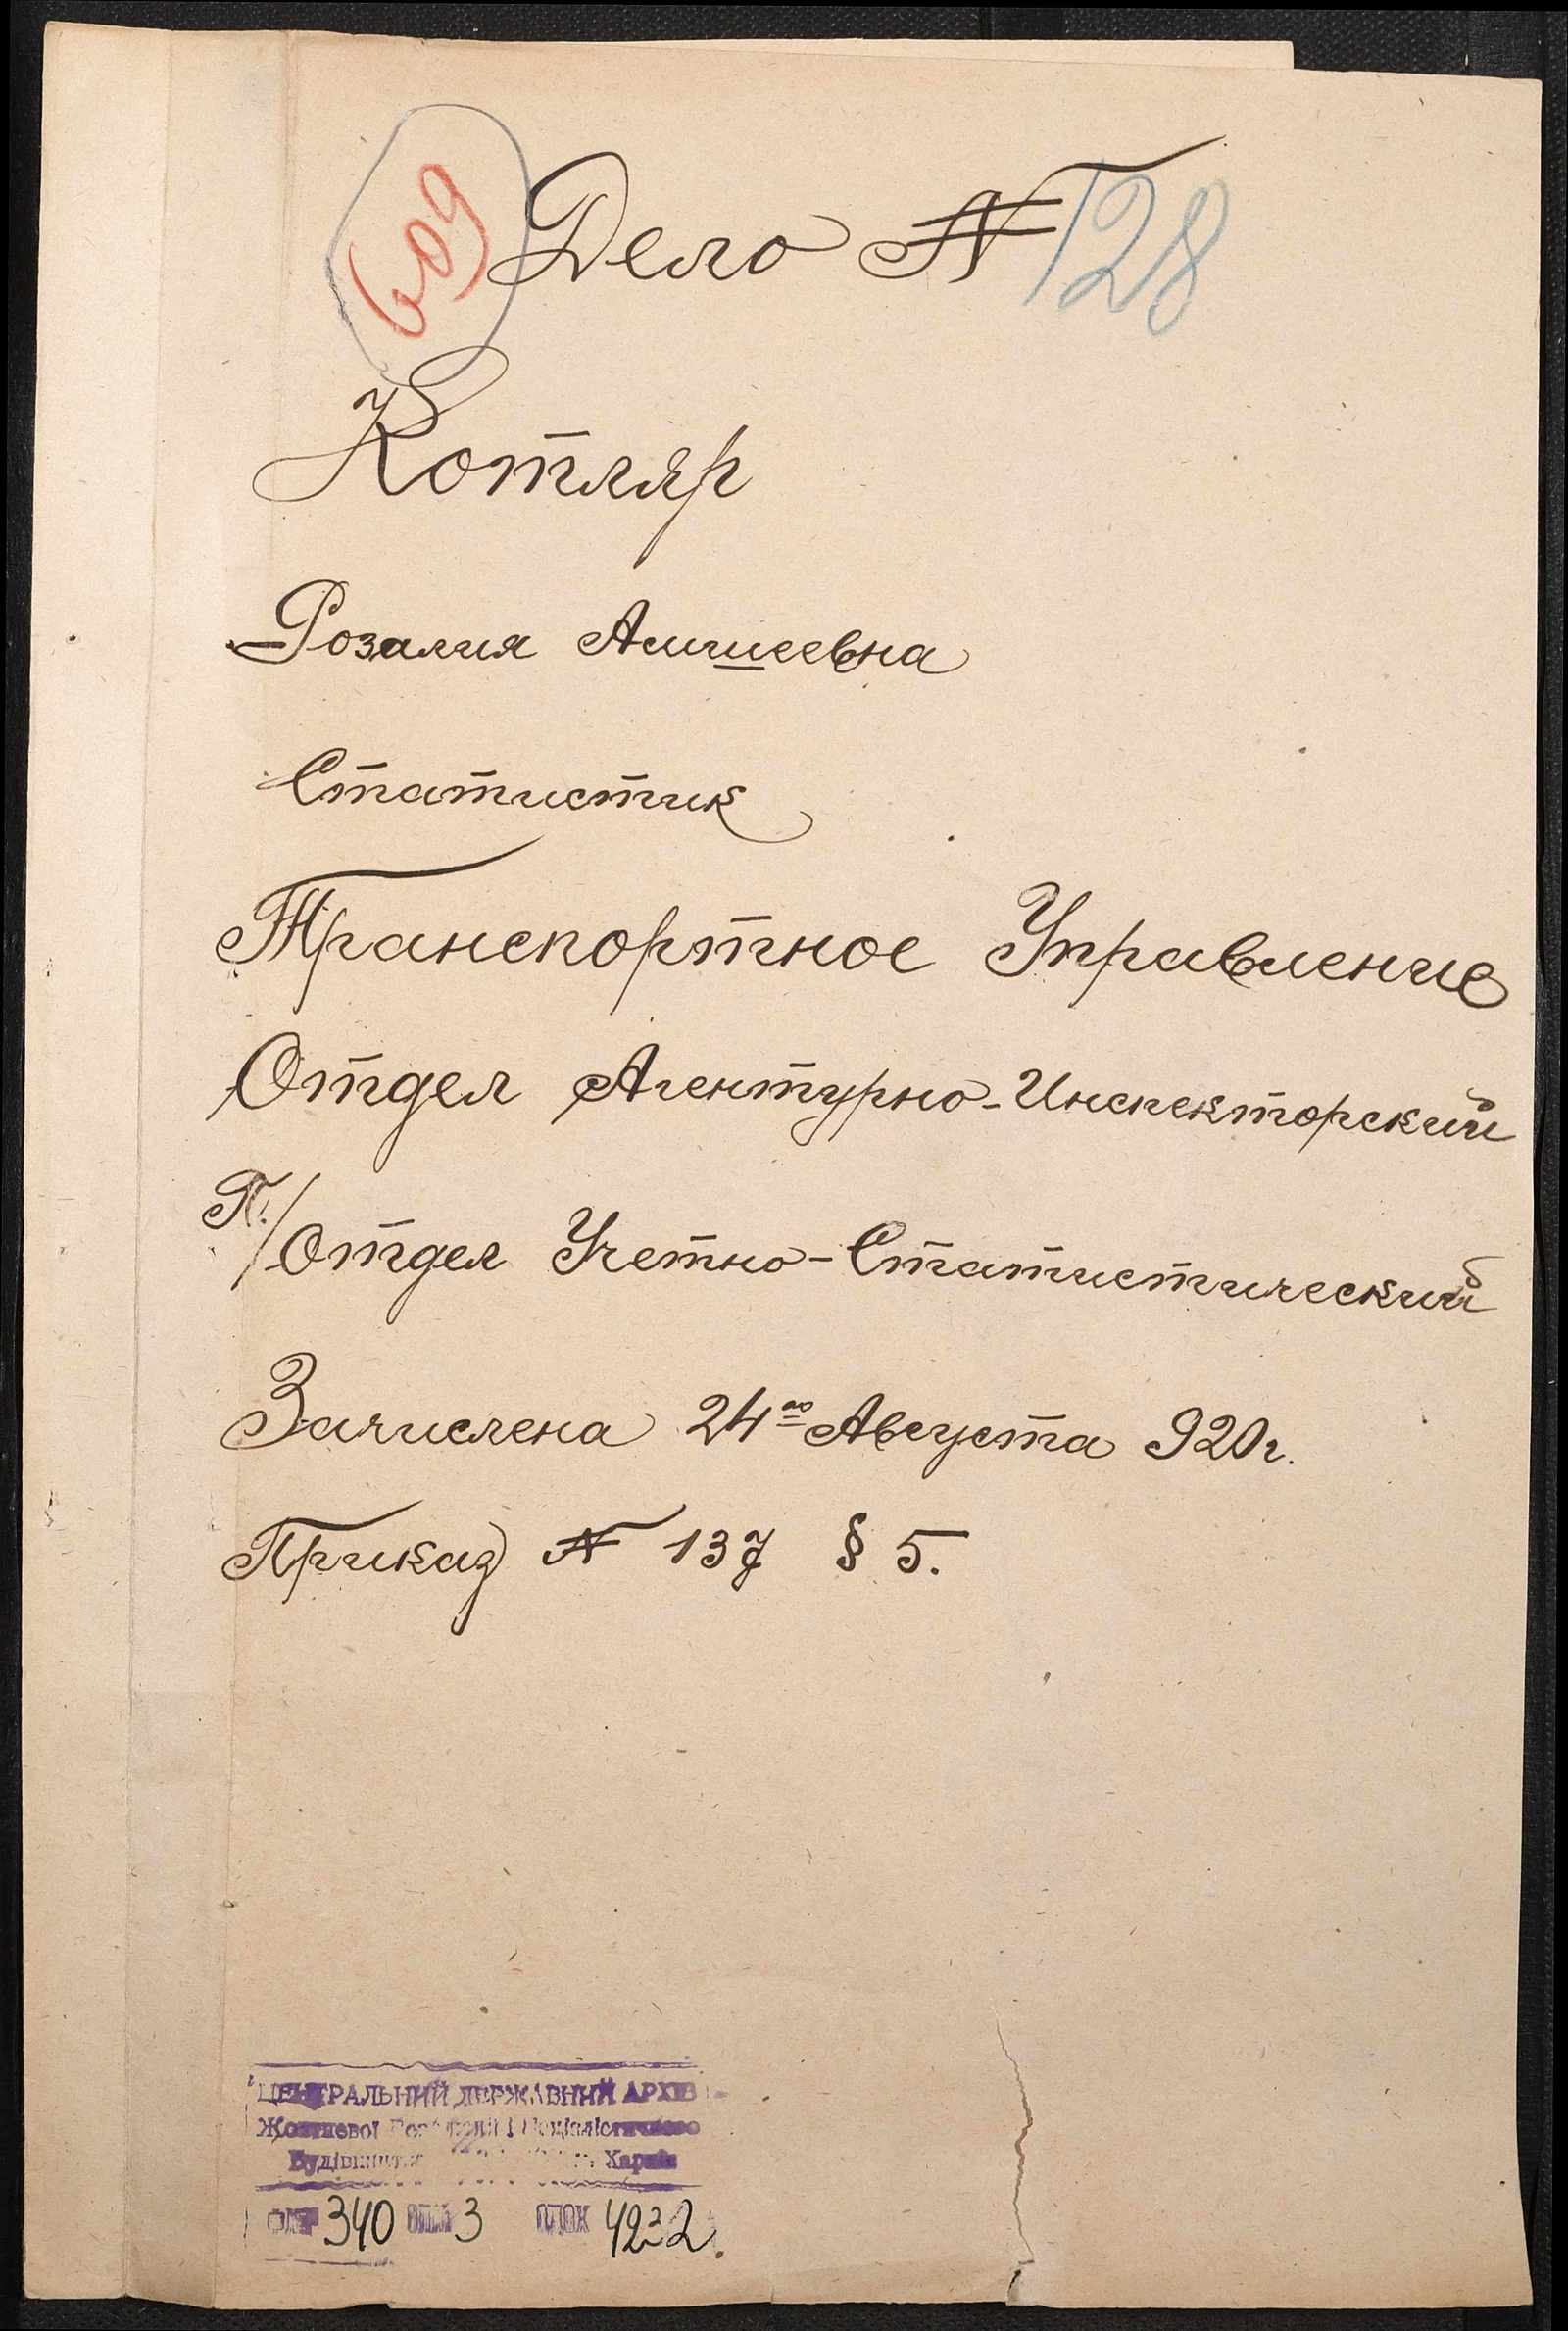 609 Дело № 128
Котляр
Розалия Алишеевна
Статистик
Транспортное Управление
Отдел Агентурно-Инспекторский
П./Отдел Учетно-Статистический
Зачислена 24го Августа 920г.
Приказ № 137 § 5.
ЦЕНТРАЛЬНИЙ ДЕРЖАВНИЙ АРХІВ
Жовтневої Революції і Соціалістичного
Будівництва Харків
340 3 4232.